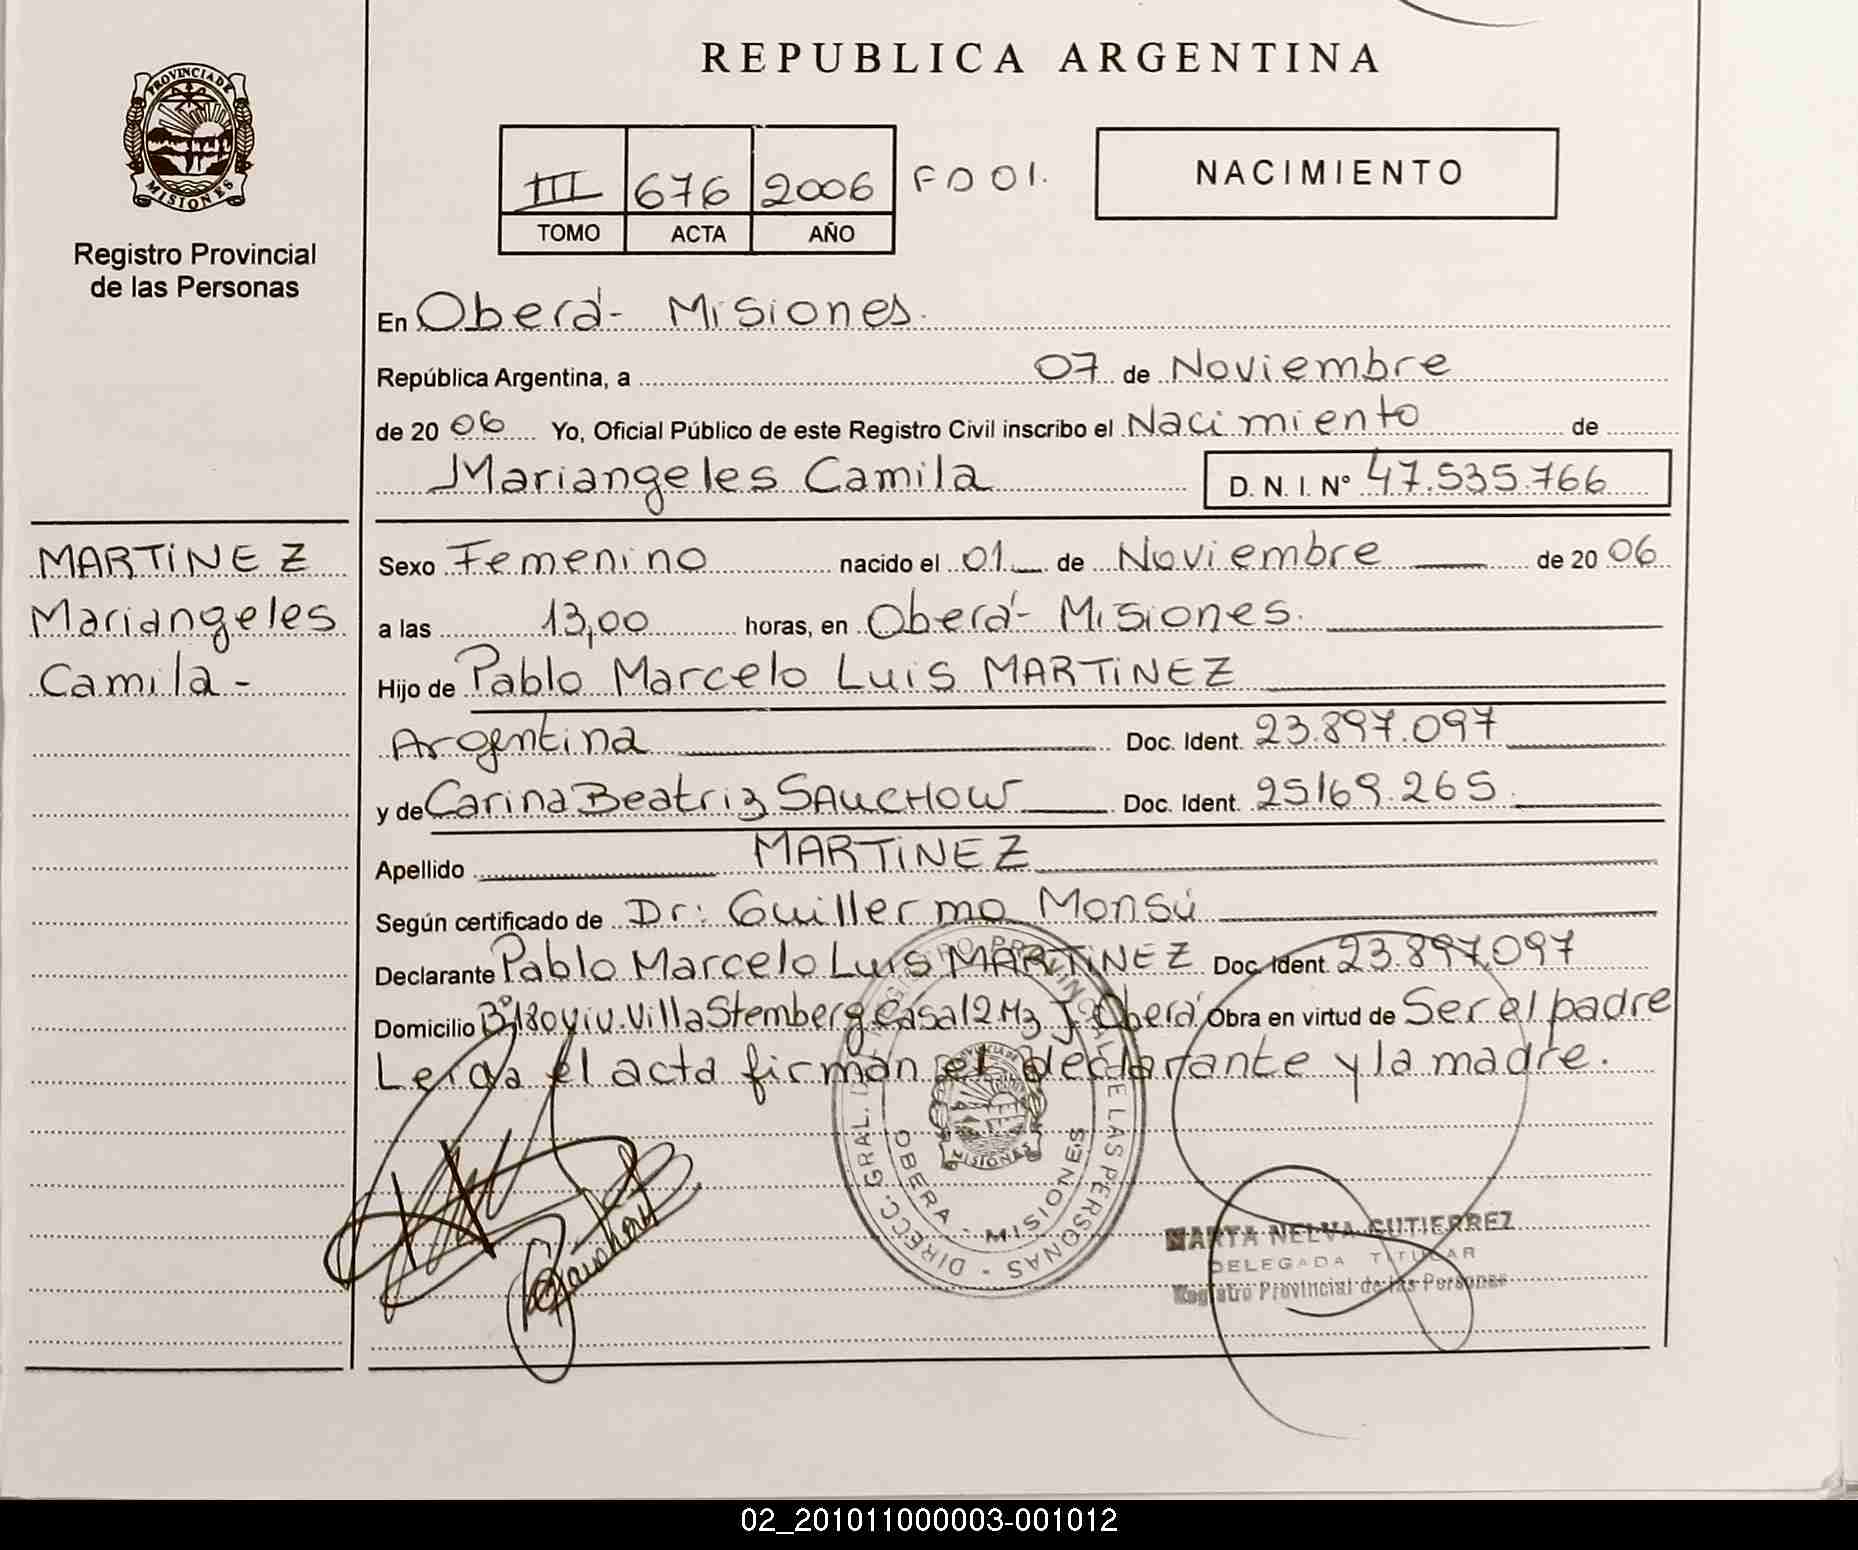 REPUBLICA ARGENTINA
PROVINCIA DE
MISIONES
Registro Provincial
de las Personas
III 676 2006 FD 01.
TOMO ACTA AÑO
NACIMIENTO
En Oberá- Misiones.
República Argentina, a 07 de Noviembre
de 20 06 Yo, Oficial Público de este Registro Civil inscribo el Nacimiento de
Mariangeles Camila D. N. I. Nº 47.535.766
MARTINEZ
Mariangeles
Camila-
Sexo Femenino nacido el 01 de Noviembre de 20 06
a las 13,00 horas, en Oberá- Misiones.
Hijo de Pablo Marcelo Luis MARTINEZ
Argentina Doc. Ident. 23.897.097
y de Carina Beatriz SAUCHOW Doc. Ident. 25169.265.
Apellido MARTINEZ
Según certificado de Dr: Guillermo Monsú
Declarante Pablo Marcelo Luis MARTINEZ Doc. Ident. 23.897.097
Domicilio Bº180 viv. Villa Stemberg Casa 12 Mz J- Oberá Obra en virtud de Ser el padre
Leida el acta firman el declarante y la madre.
DIRECC. GRAL. REGISTRO PROVINCIAL DE LAS PERSONAS
OBERA - MISIONES
PROVINCIA DE
MISIONES
MARTA NELVA GUTIERREZ
DELEGADA TITULAR
Registro Provincial de las Personas
02_201011000003-001012